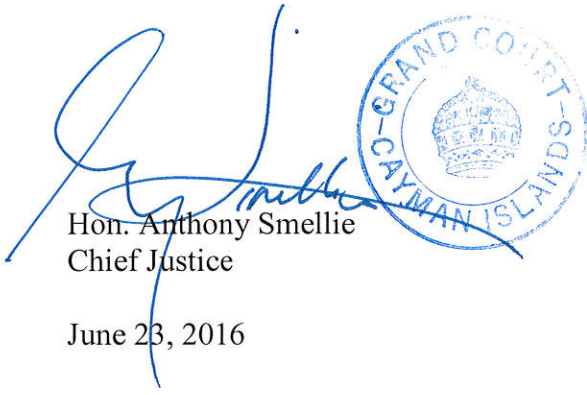 GRAND COURT
CAYMAN ISLANDS
Smellie
Hon. Anthony Smellie
Chief Justice
June 23, 2016